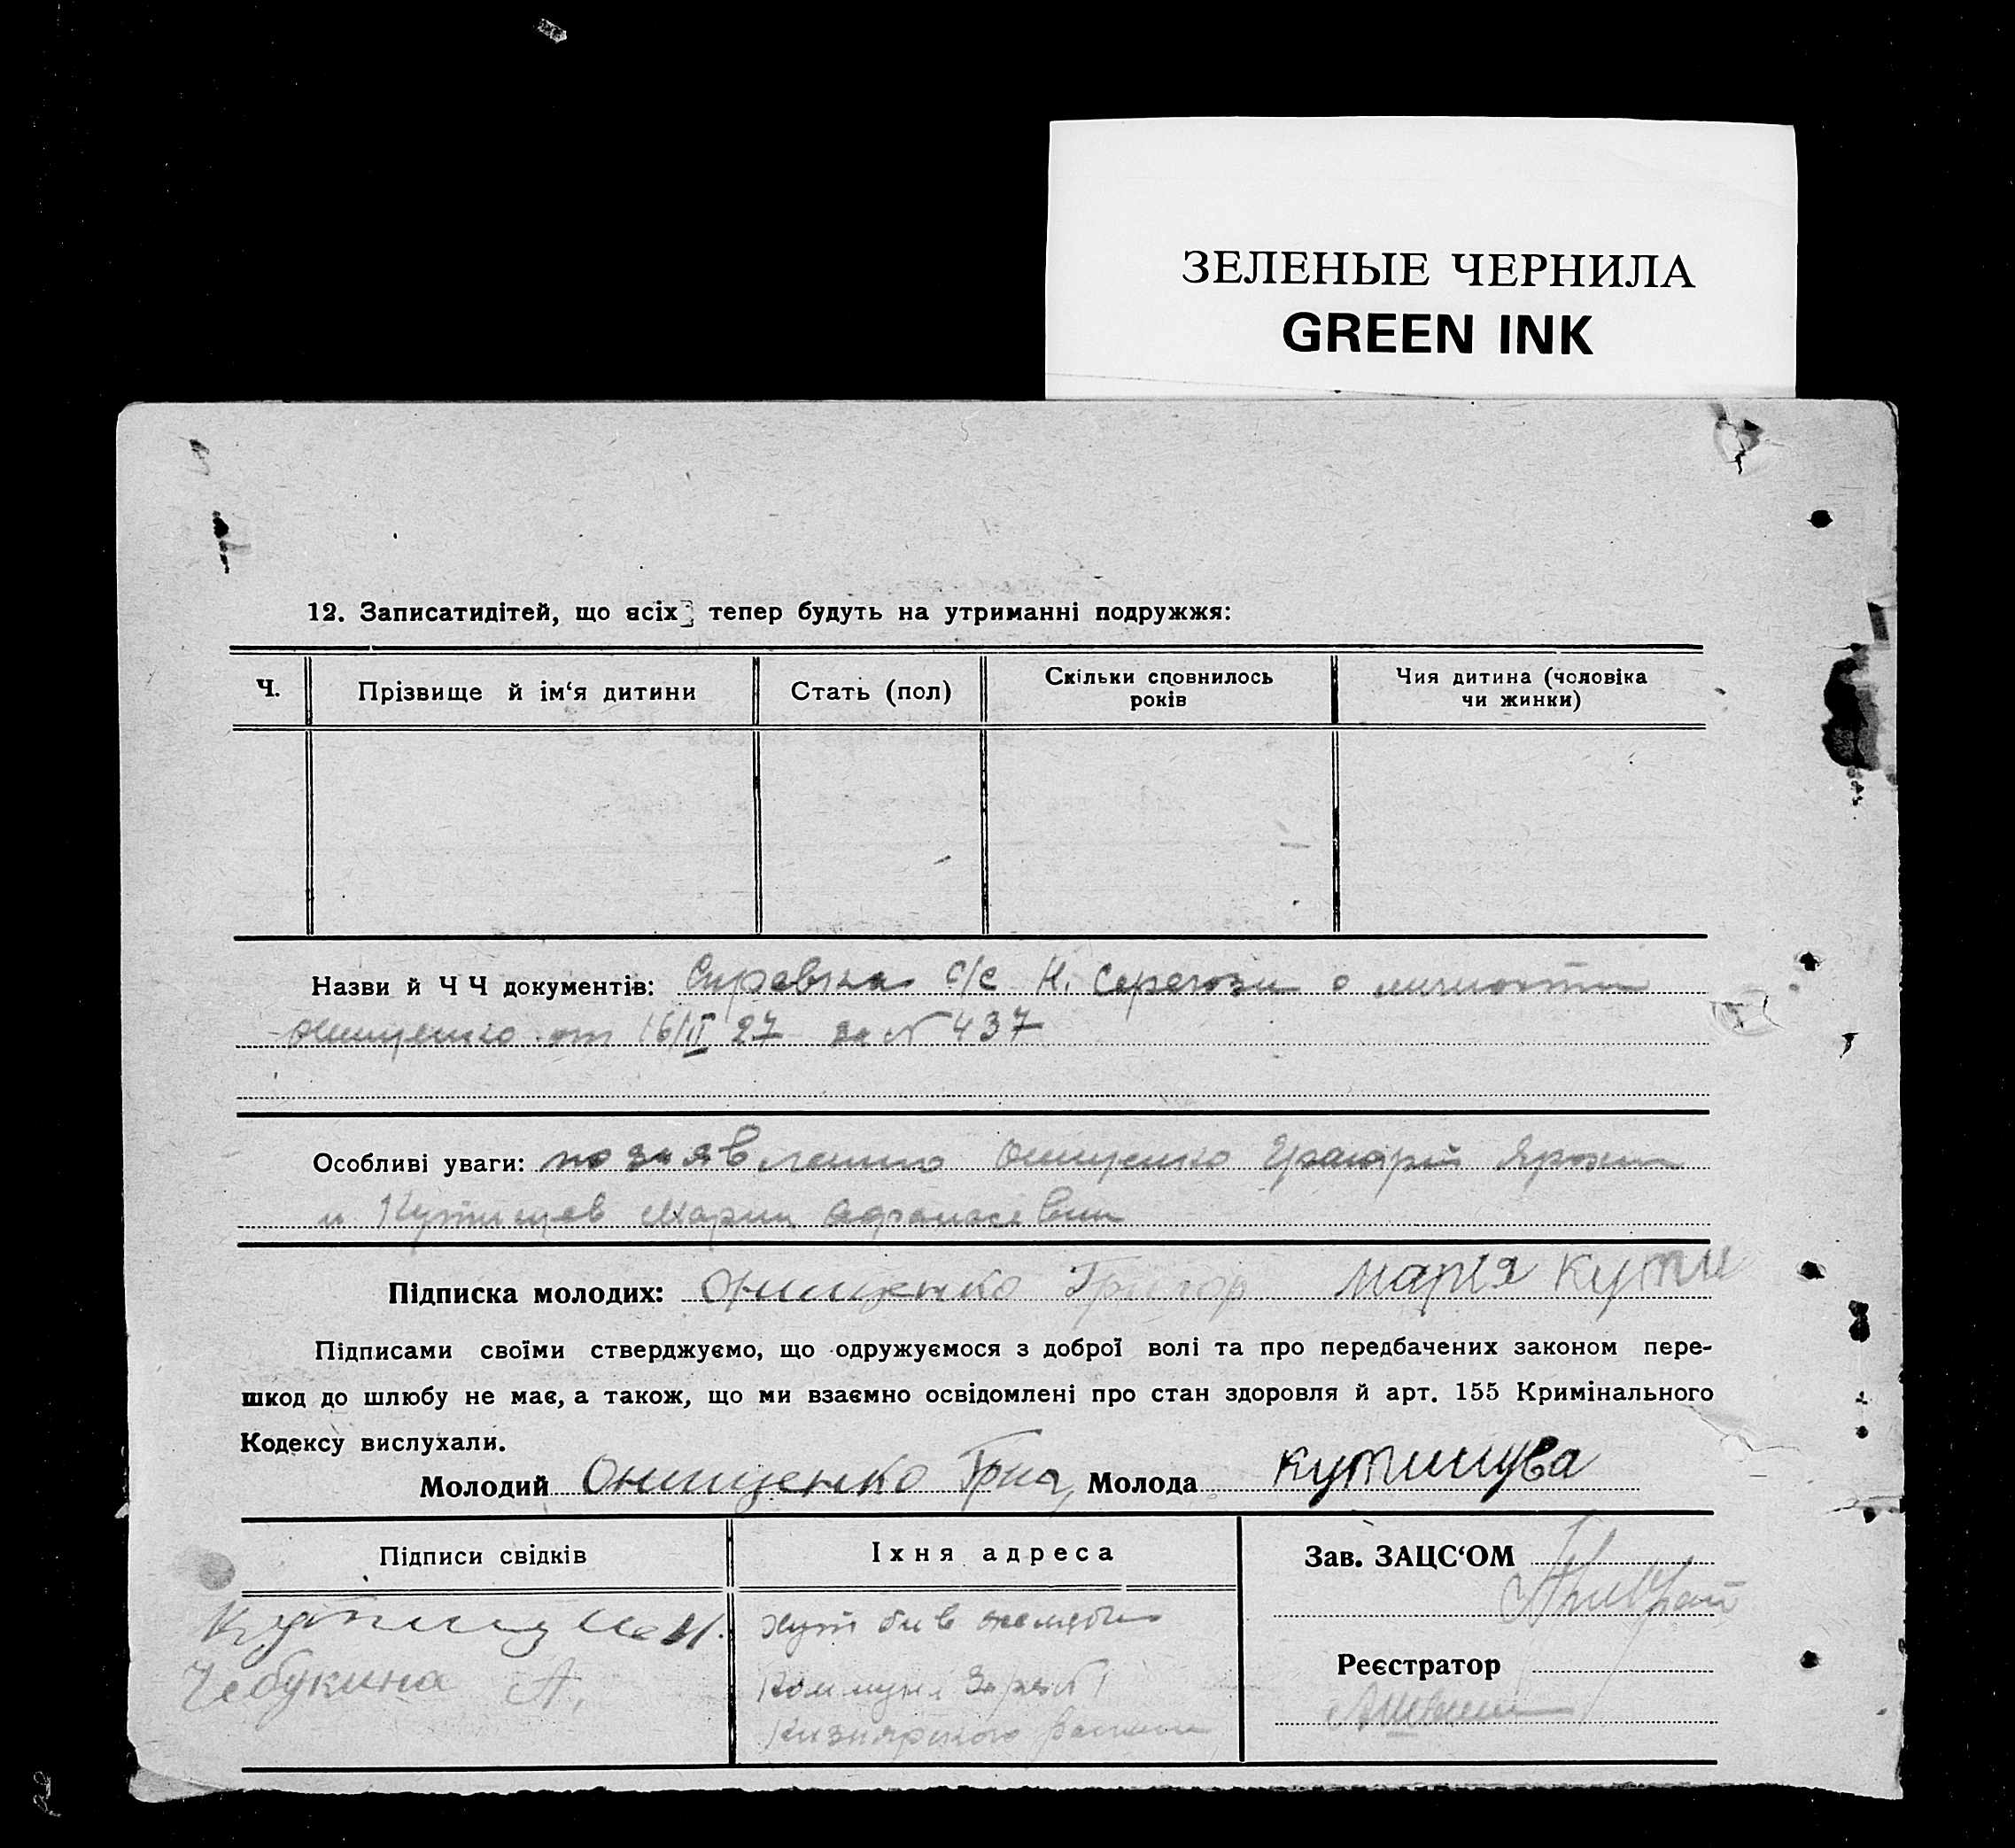 ЗЕЛЕНЫЕ ЧЕРНИЛА
GREEN INK
12. Записатидітей, що всіх тепер будуть на утриманні подружжя:
Ч.
Прізвище й ім‘я дитини
Стать (пол)
Скільки сповнилось
років
Чия дитина (чоловіка
чи жинки)
Назви й Ч Ч документів: Справка с/с Н. Серегози о личности
Онищенко от 16/II 27 за № 437
Особливі уваги: по заявлению Онищенко
и Марии Афанасевни
Підписка молодих: Онищенко Григор Марія Кути
Підписами своїми стверджуємо, що одружуємося з доброї волі та про передбачених законом пере-
шкод до шлюбу не має, а також, що ми взаємно освідомлені про стан здоровля й арт. 155 Кримінального
Кодексу вислухали.
Молодий Онищенко Григ, Молода Кутищева
Підписи свідків
Їхня адреса
Зав. ЗАЦС‘ОМ
Чебукина А.
Реєстратор